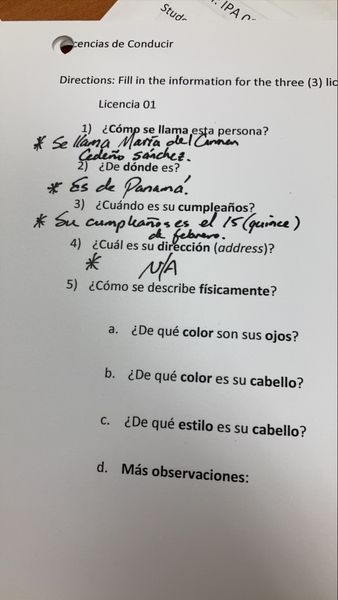 Stude
: IPA
cencias de Conducir
Directions: Fill in the information for the three (3) lic
Licencia 01
1) ¿Cómo se llama esta persona?
* Se llama María del Carmen
Cedeño Sánchez.
2) ¿De dónde es?
* Es de Panamá.
3) ¿Cuándo es su cumpleaños?
* Su cumpleaños es el 15 (quince)
de febrero.
4) ¿Cuál es su dirección (address)?
* N/A
5) ¿Cómo se describe físicamente?
a. ¿De qué color son sus ojos?
b. ¿De qué color es su cabello?
c. ¿De qué estilo es su cabello?
d. Más observaciones: